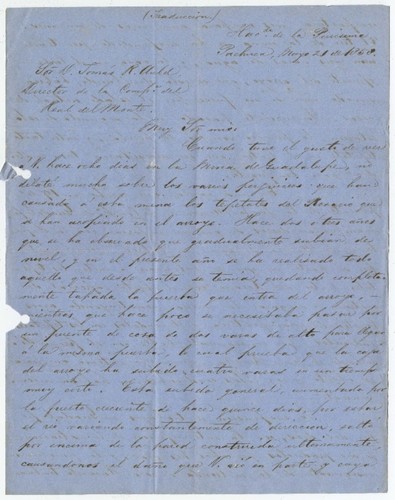 (Traduccion)
Hacᵈᵃ de la Purisima
Pachuca, Mayo 21 de 1858.
Sor D. Tomas R. Auld
Director de la Compᵃ. del
Real del Monte.
Muy Sor mio:
Cuando tuve el gusto de ver á
V. hace ocho dias en la Mina de Guadalupe, no
dilaté mucho sobre los varios perjuicios que han
causado á esta mina los tepetates del Rosario que
se han acopiado en el arroyo. Hace dos ó tres años
que se ha observado que gradualmente subian de
nivel, y en el presente año se ha realizado todo
aquello que desde antes se temia, quedando completa-
mente tapada la puerta que entra del arroyo,
mientras que hace poco se necesitaba pasar por
un puente de cosa de dos varas de alto para llegar
á la misma puerta, lo cual prueba que la caja
del arroyo ha subido cuatro varas en un tiempo
muy corto. Esta subida general, aumentada por
la fuerte creciente de hace quince dias, por echar
el rio variando constantemente de direccion, saltó
por encima de la pared construida ultimamente
causandonos el daño que V. vió en parte, y cuyo